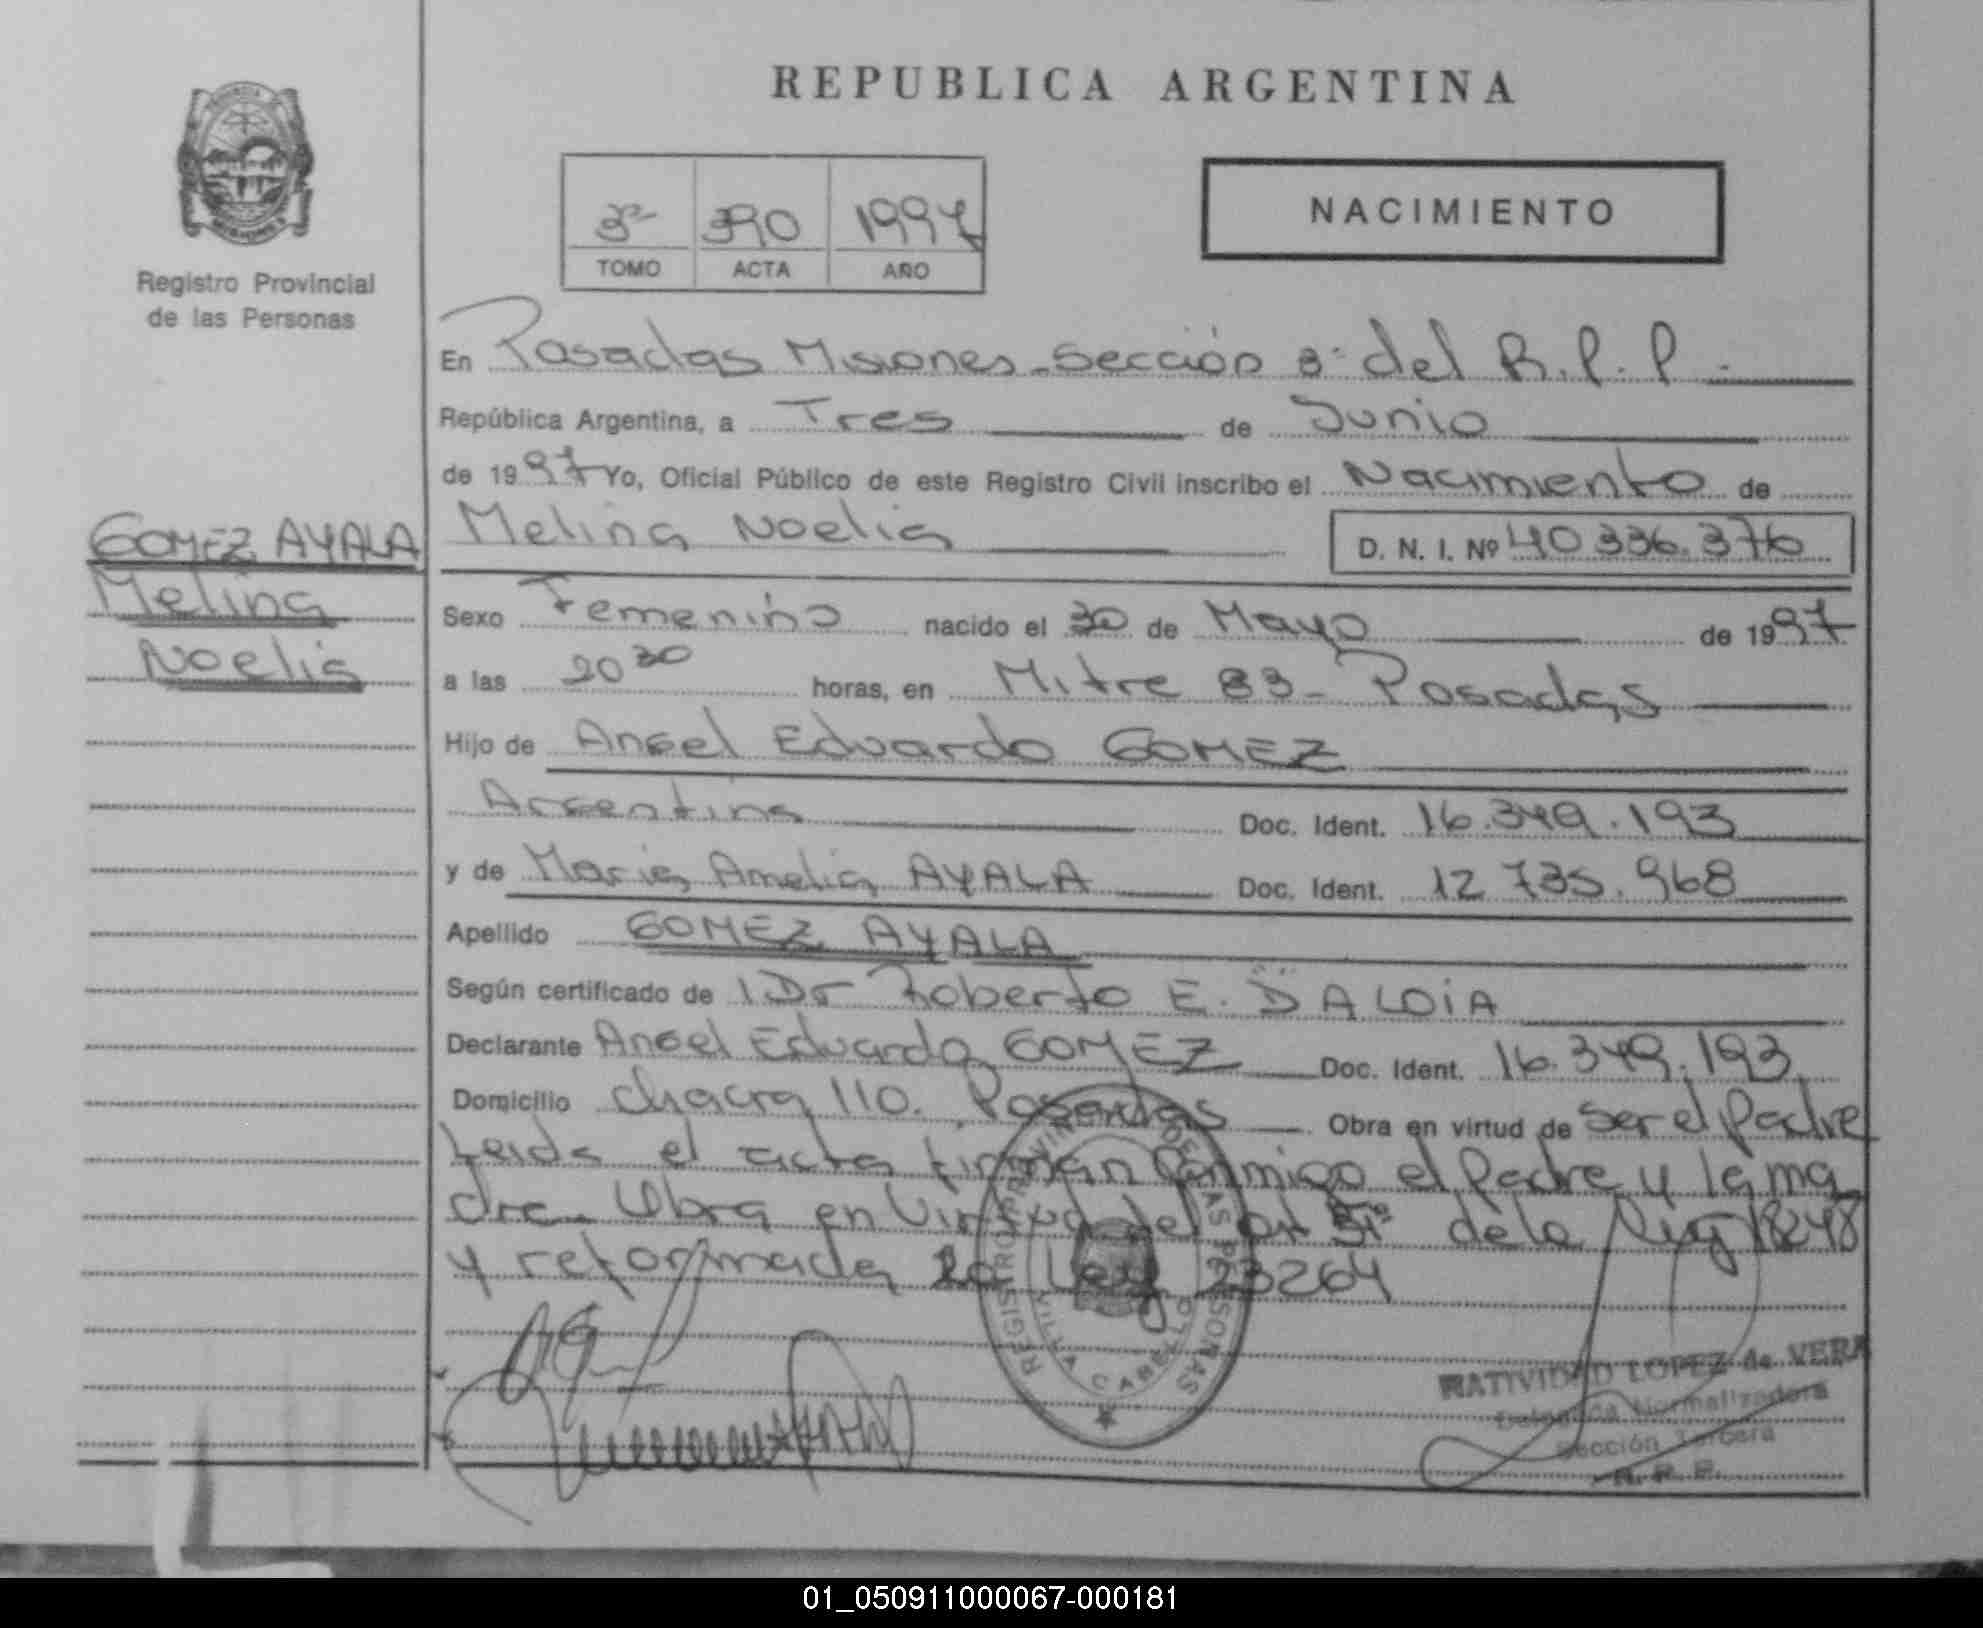 REPUBLICA ARGENTINA
Registro Provincial
de las Personas
3º 390 1997
TOMO ACTA AÑO
NACIMIENTO
En Posadas Misiones - Sección 3º del R. P. P. -
República Argentina, a Tres de Junio
de 1997 Yo, Oficial Público de este Registro Civil inscribo el Nacimiento de
Melina Noelia D. N. I. Nº 40 336.376
GOMEZ AYALA
Melina
Noelia
Sexo Femenino nacido el 30 de Mayo de 1997
a las 20 30 horas, en Mitre 83 - Posadas
Hijo de Angel Eduardo GOMEZ
Argentina Doc. Ident. 16.349.193
y de Maria Amelia AYALA Doc. Ident. 12 735.968
Apellido GOMEZ AYALA
Según certificado de Dr Roberto E. D'ALOIA
Declarante Angel Eduardo GOMEZ Doc. Ident. 16.349.193
Domicilio Chacra 110. Posadas Obra en virtud de ser el Padre
Leida el acta firman conmigo el Padre y la ma
dre. Obra en Virtud del art 5º de la Ley 18248
y reformada la Ley 23264
REGISTRO PROVINCIAL DE LAS PERSONAS
VILLA CABELLO
NATIVIDAD LOPEZ de VERA
Delegada Normalizadora
Sección Tercera
R. P. P.
01_050911000067-000181